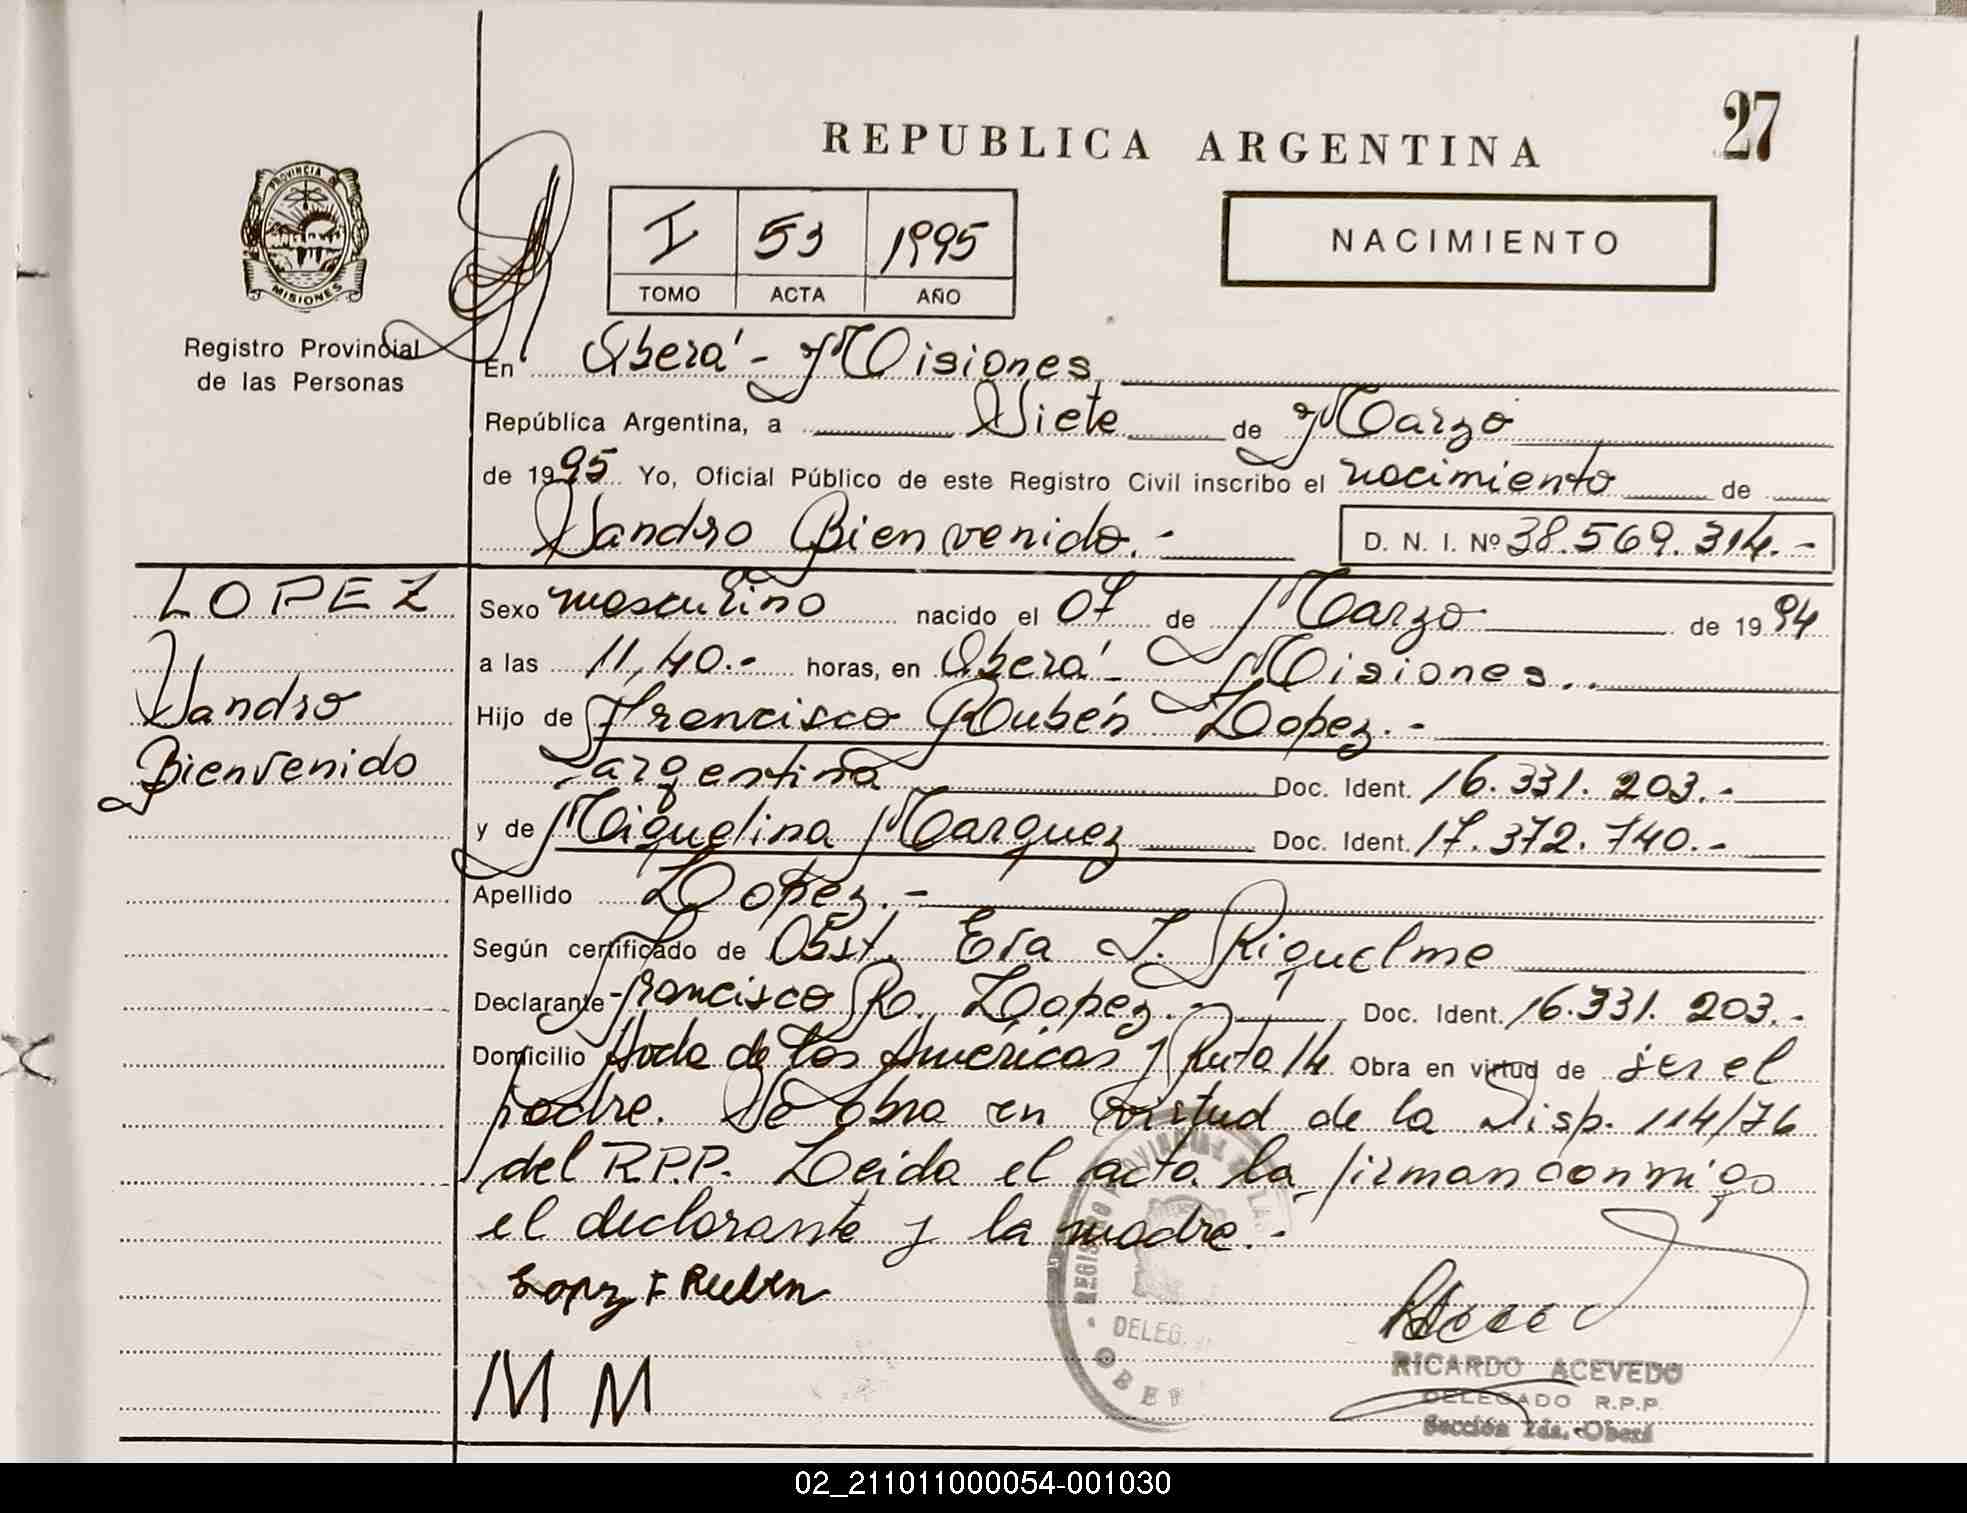 REPUBLICA ARGENTINA
27
PROVINCIA DE
MISIONES
Registro Provincial
de las Personas
I 53 1995
TOMO ACTA AÑO
NACIMIENTO
En Oberá - Misiones
República Argentina, a Siete de Marzo
de 1995 Yo, Oficial Público de este Registro Civil inscribo el nacimiento de
Sandro Bienvenido.- D. N. I. Nº 38.569.314.-
LOPEZ
Sandro
Bienvenido
Sexo masculino nacido el 07 de Marzo de 1994
a las 11,40.- horas, en Oberá - Misiones..
Hijo de Francisco Rubén Lopez.-
argentina Doc. Ident. 16.331.203.-
y de Miguelina Marquez Doc. Ident. 17.372.740.-
Apellido Lopez.-
Según certificado de Obst. Eva J. Riquelme
Declarante Francisco R. Lopez.- Doc. Ident. 16.331.203.-
Domicilio Avda de las Américas y Ruta 14 Obra en virtud de ser el
padre. Se obra en virtud de la Disp. 114/76
del R.P.P. Leida el acta la firman conmigo
el declarante y la madre.-
Lopez F Ruben
M M
REGISTRO PROVINCIAL DE LAS
DELEG.
OBER
RICARDO ACEVEDO
DELEGADO R.P.P.
Sección 2da. Oberá
02_211011000054-001030